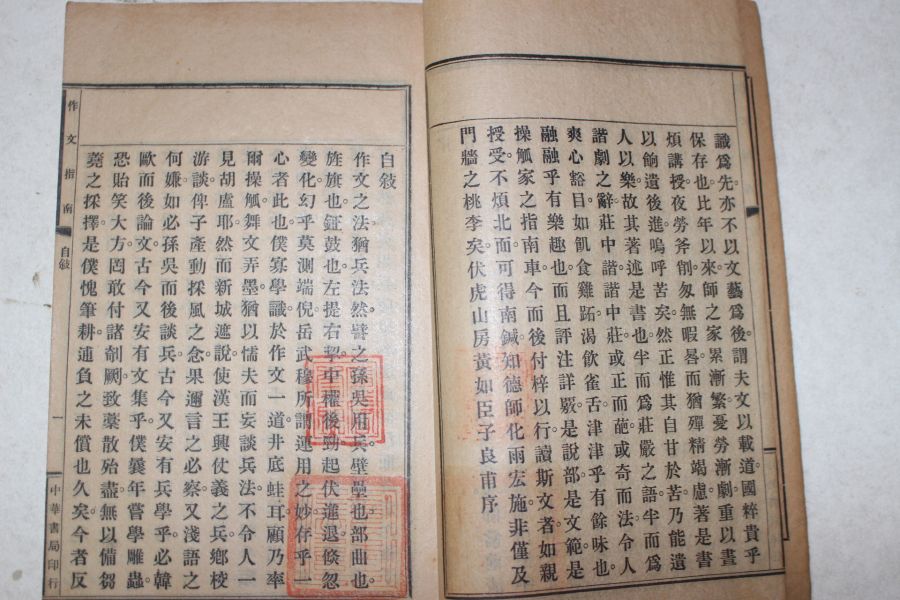 識爲先亦不以文藝爲後謂夫文以載道國粹貴乎
保存也比年以來師之家累漸繁憂勞漸劇重以晝
煩講授夜勞斧削匆無暇晷而猶殫精竭慮著是書
以餉遺後進嗚呼苦矣然正惟其自甘於苦乃能遺
人以樂故其著述是書也半而爲莊嚴之語半而爲
諧劇之辭莊中諧諧中莊或正而葩或奇而法令人
爽心豁目如飢食雞跖湯飲雀舌津津乎有餘味也
融融乎有樂趣也而且評注詳嚴是說部是文範是
操觚家之指南車今而後付梓以行讀斯文者如親
授受不煩北面而可得南鍼知德師化雨宏施非僅及
門牆之桃李矣伏虎山房黃如臣子良甫序
自敍
作文之法猶兵法然譬之孫吳用兵壁壘也部曲也
旌旗也鉦鼓也左提右挈中權後勁起伏進退倏忽
變化幻乎莫測端倪岳武穆所謂運用之妙存乎一
心者此也僕寡學識於作文一道井底蛙耳顧乃率
爾操觚舞文弄墨猶以懦夫而妄談兵法不令人一
見胡盧耶然而新城遮說使漢王興仗義之兵鄉校
游談俾子產動採風之念果邇言之必察又淺語之
何嫌如必孫吳而後談兵古今又安有兵學乎必韓
歐而後論文古今又安有文集乎僕曩年嘗學雕蟲
恐貽笑大方罔敢付諸剞劂致藁散殆盡無以備芻
蕘之採擇是僕愧筆耕逋負之未償也久矣今者反
作文指南
自敍
一
中華書局印行